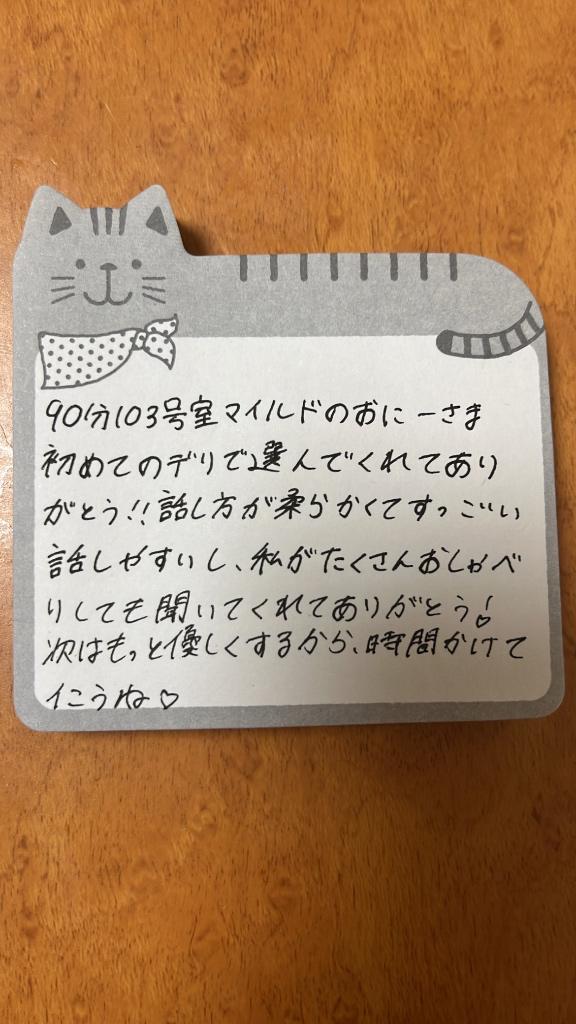 90分103号室マイルドのおにーさま
初めてのデリで選んでくれてあり
がとう!!話し方が柔らかくてすっごい
話しやすいし、私がたくさんおしゃべ
りしても聞いてくれてありがとう!
次はもっと優しくするから、時間かけて
イこうね♡